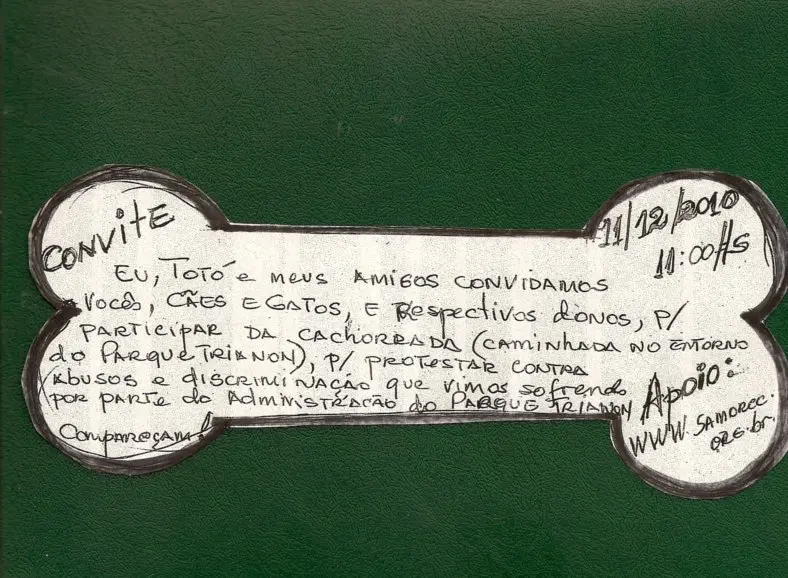 CONVITE
11/12/2010
11:00Hs
EU, TOTÓ e meus AMIGOS CONVIDAMOS
VOCÊS, CÃES E GATOS, E Respectivos donos, P/
PARTICIPAR DA CACHORRADA (CAMINHADA NO ENTORNO
do PARQUE TRIANON), P/ PROTESTAR CONTRA
Abusos e discriminação que vimos sofrendo
POR PARTE da Administração do PARQUE TRIANON
Compareçam!
Apoio:
WWW.SAMOREC.
ORG.br.